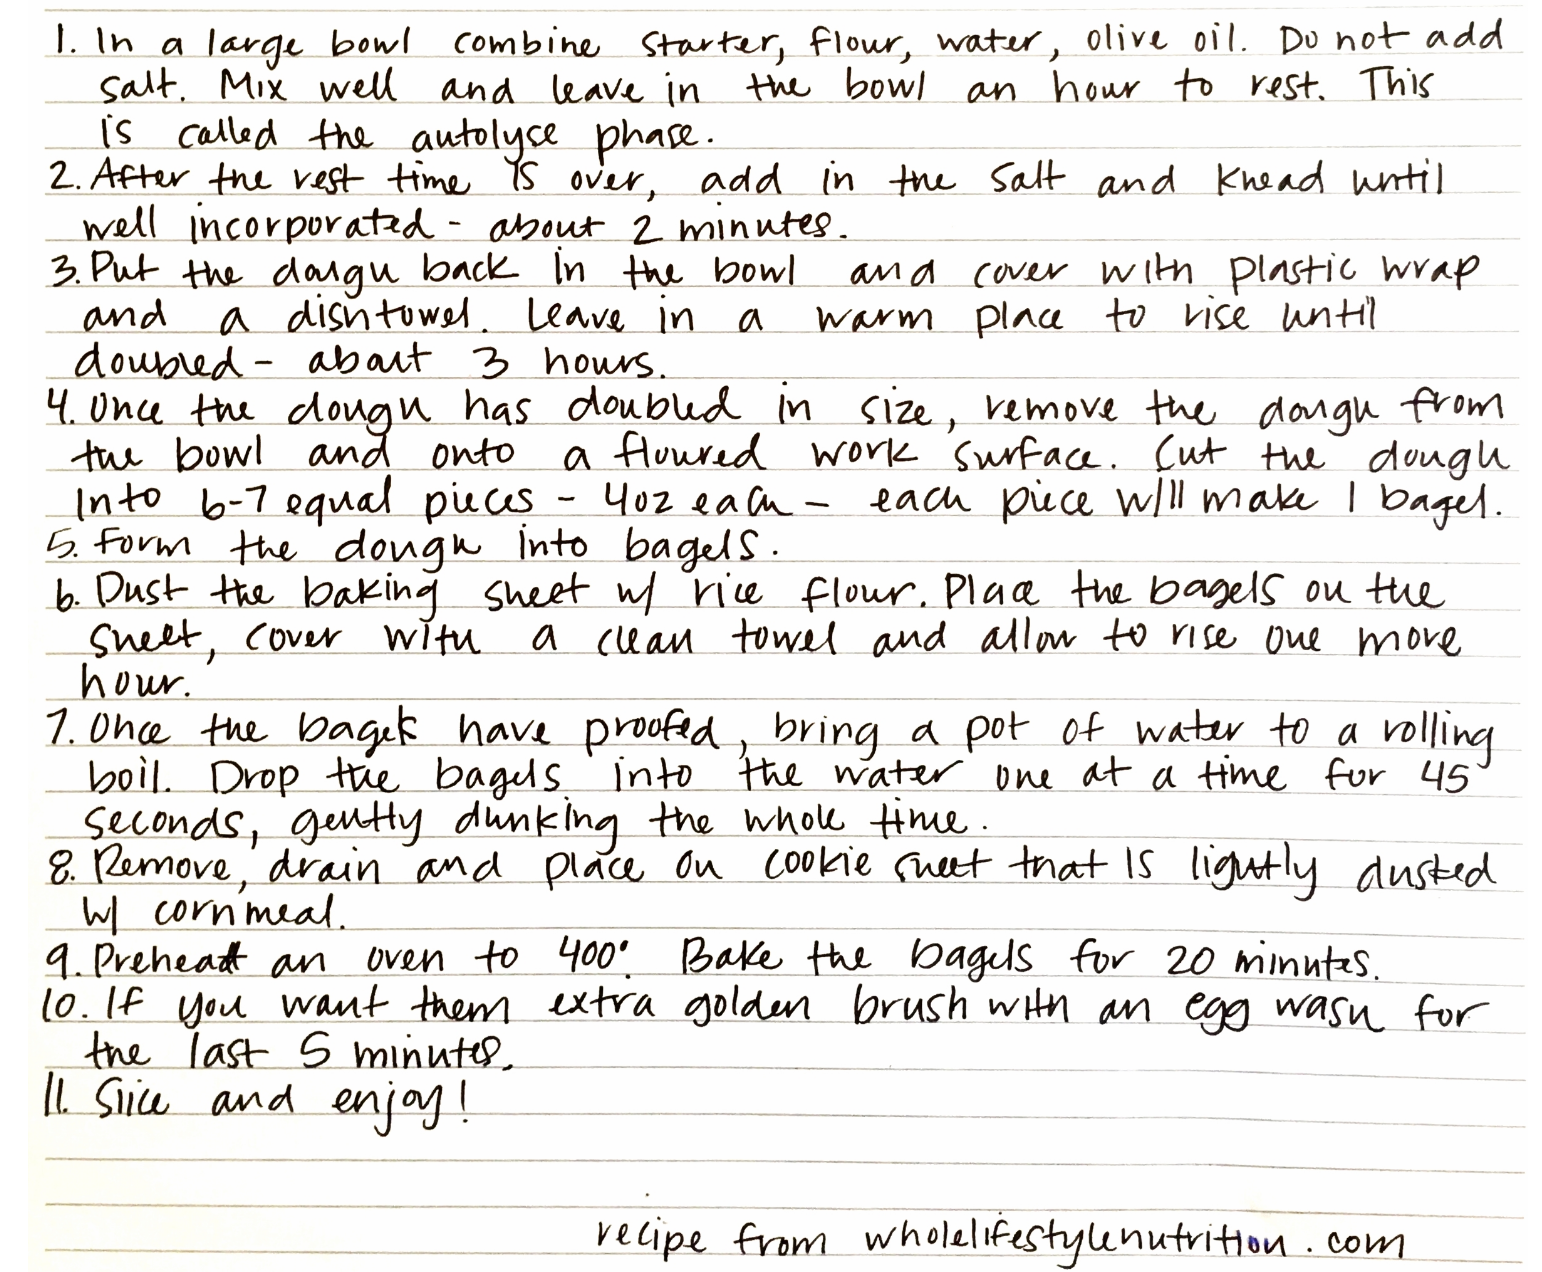 1. In a large bowl combine starter, flour, water, olive oil. Do not add
salt. Mix well and leave in the bowl an hour to rest. This
is called the autolyse phase.
2. After the rest time is over, add in the salt and knead until
well incorporated - about 2 minutes.
3. Put the dough back in the bowl and cover with plastic wrap
and a dishtowel. Leave in a warm place to rise until
doubled - about 3 hours.
4. Once the dough has doubled in size, remove the dough from
the bowl and onto a floured work surface. Cut the dough
into 6-7 equal pieces - 4oz each - each piece will make 1 bagel.
5. Form the dough into bagels.
6. Dust the baking sheet w/ rice flour. Place the bagels on the
sheet, cover with a clean towel and allow to rise one more
hour.
7. Once the bagels have proofed, bring a pot of water to a rolling
boil. Drop the bagels into the water one at a time for 45
seconds, gently dunking the whole time.
8. Remove, drain and place on cookie sheet that is lightly dusted
w/ cornmeal.
9. Preheat an oven to 400°. Bake the bagels for 20 minutes.
10. If you want them extra golden brush with an egg wash for
the last 5 minutes.
11. Slice and enjoy!
recipe from wholelifestylenutrition.com